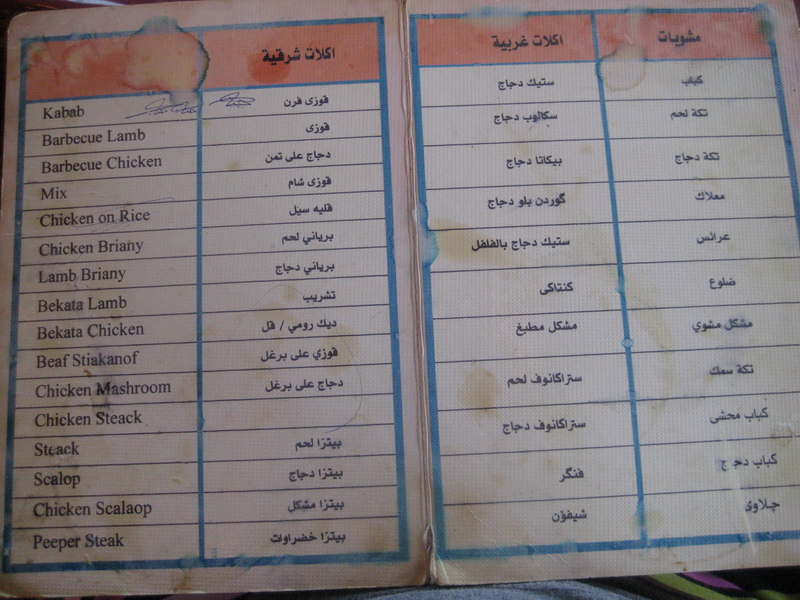 اكلات شرقية
Kabab
قوزى فرن
Barbecue Lamb
قوزى
Barbecue Chicken
دجاج على تمن
Mix
قوزى شام
Chicken on Rice
قليه سيل
Chicken Briany
برياني لحم
Lamb Briany
برياني دجاج
Bekata Lamb
تشريب
Bekata Chicken
ديك رومي / قل
Beaf Stiakanof
قوزي على برغل
Chicken Mashroom
دجاج على برغل
Chicken Steack
Steack
بيتزا لحم
Scalop
بيتزا دجاج
Chicken Scalaop
بيتزا مشكل
Peeper Steak
بيتزا خضراوات
مشويات
اكلات غربية
كباب
ستيك دجاج
تكة لحم
سكالوب دجاج
تكة دجاج
بيكاتا دجاج
معلاك
گوردن بلو دجاج
عرائس
ستيك دجاج بالفلفل
ضلوع
كنتاكى
مشكل مشوي
مشكل مطبغ
تكة سمك
ستراكانوف لحم
كباب محشى
ستراكانوف دجاج
كباب دجاج
فنگر
جلاوى
شيفؤن